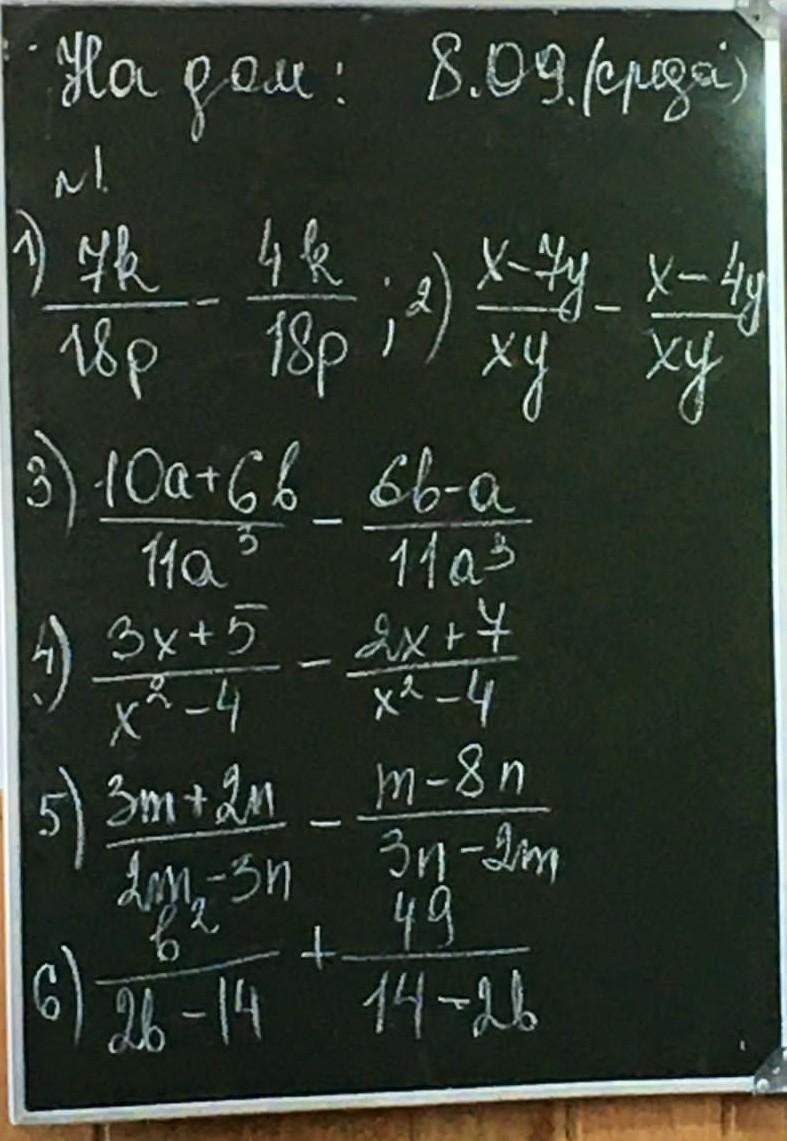 На дом: 8.09. (среда)
№1.
1) 7k/18p - 4k/18p ; 2) x-7y/xy - x-4y/xy
3) 10a+6b/11a³ - 6b-a/11a³
4) 3x+5/x²-4 - 2x+7/x²-4
5) 3m+2n/2m-3n - m-8n/3n-2m
6) b²/2b-14 + 49/14-2b